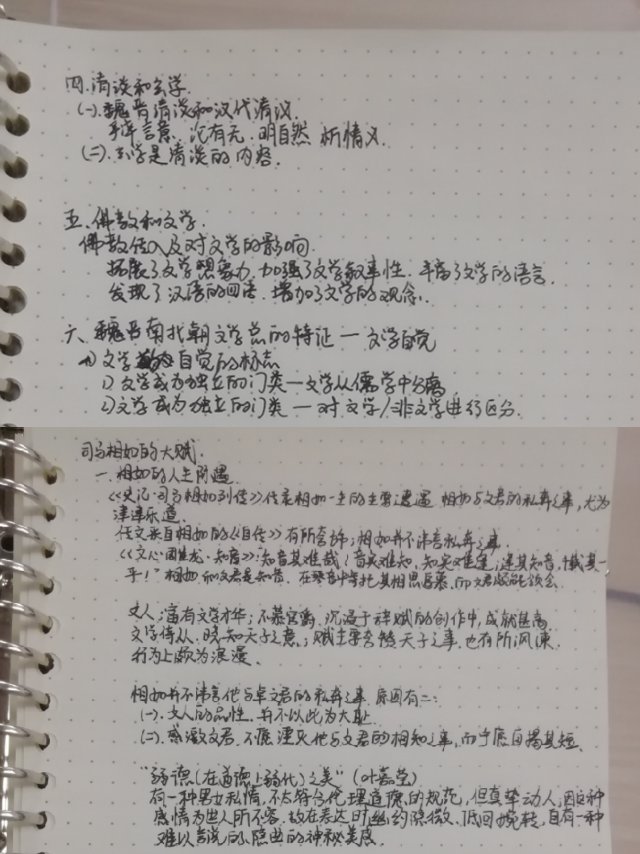 四.清谈和玄学.
(一).魏晋清谈和汉代清议.
言意、论有无.明自然 析情义.
(二).玄学是清谈的内容.
五、佛教和文学.
佛教传入及对文学的影响.
拓展了文学想象力.加强了文学叙事性.丰富了文学的语言.
发现了汉语的四声.增加了文学的观念.
六、魏晋南北朝文学总的特征—文学自觉
文学自觉的标志
1)文学成为独立的门类—文学从儒学中分离
2)文学成为独立的门类—对文学/非文学进行区分.
司马相如的大赋.
一.相如的人生际遇.
《史记·司马相如列传》代表相如一生的主要遭遇 相如与文君的私奔之事,尤为
津津乐道.
传文来自相如的《自传》有所夸饰;相如并不讳言私奔之事.
《文心雕龙·知音》:知音其难哉!音实难知,知实难逢;逢其知音,千载其一
乎!"相如和文君是知音.在琴音中寄托其相思爱慕,而文君能领会
文人:富有文学才华;不慕官爵,沉湎于辞赋的创作中,成就甚高
文学侍从.晓知天子之意;赋主要夸饰天子之事.也有所讽谏.
行为上颇为浪漫.
相如并不讳言他与卓文君的私奔之事.原因有二:
(一).文人的品性.并不以此为大耻.
(二).感激文君.不愿湮灭他与文君的相知之事,而宁愿自揭其短.
"弱德(在道德上弱化)之美"(叶嘉莹)
有一种男女私情,不太符合伦理道德的规范,但真挚动人,因这种
感情为世人所不容.故在表达时幽约隐微、低回婉转,自有一种
难以言说的、隐曲的神秘美感.